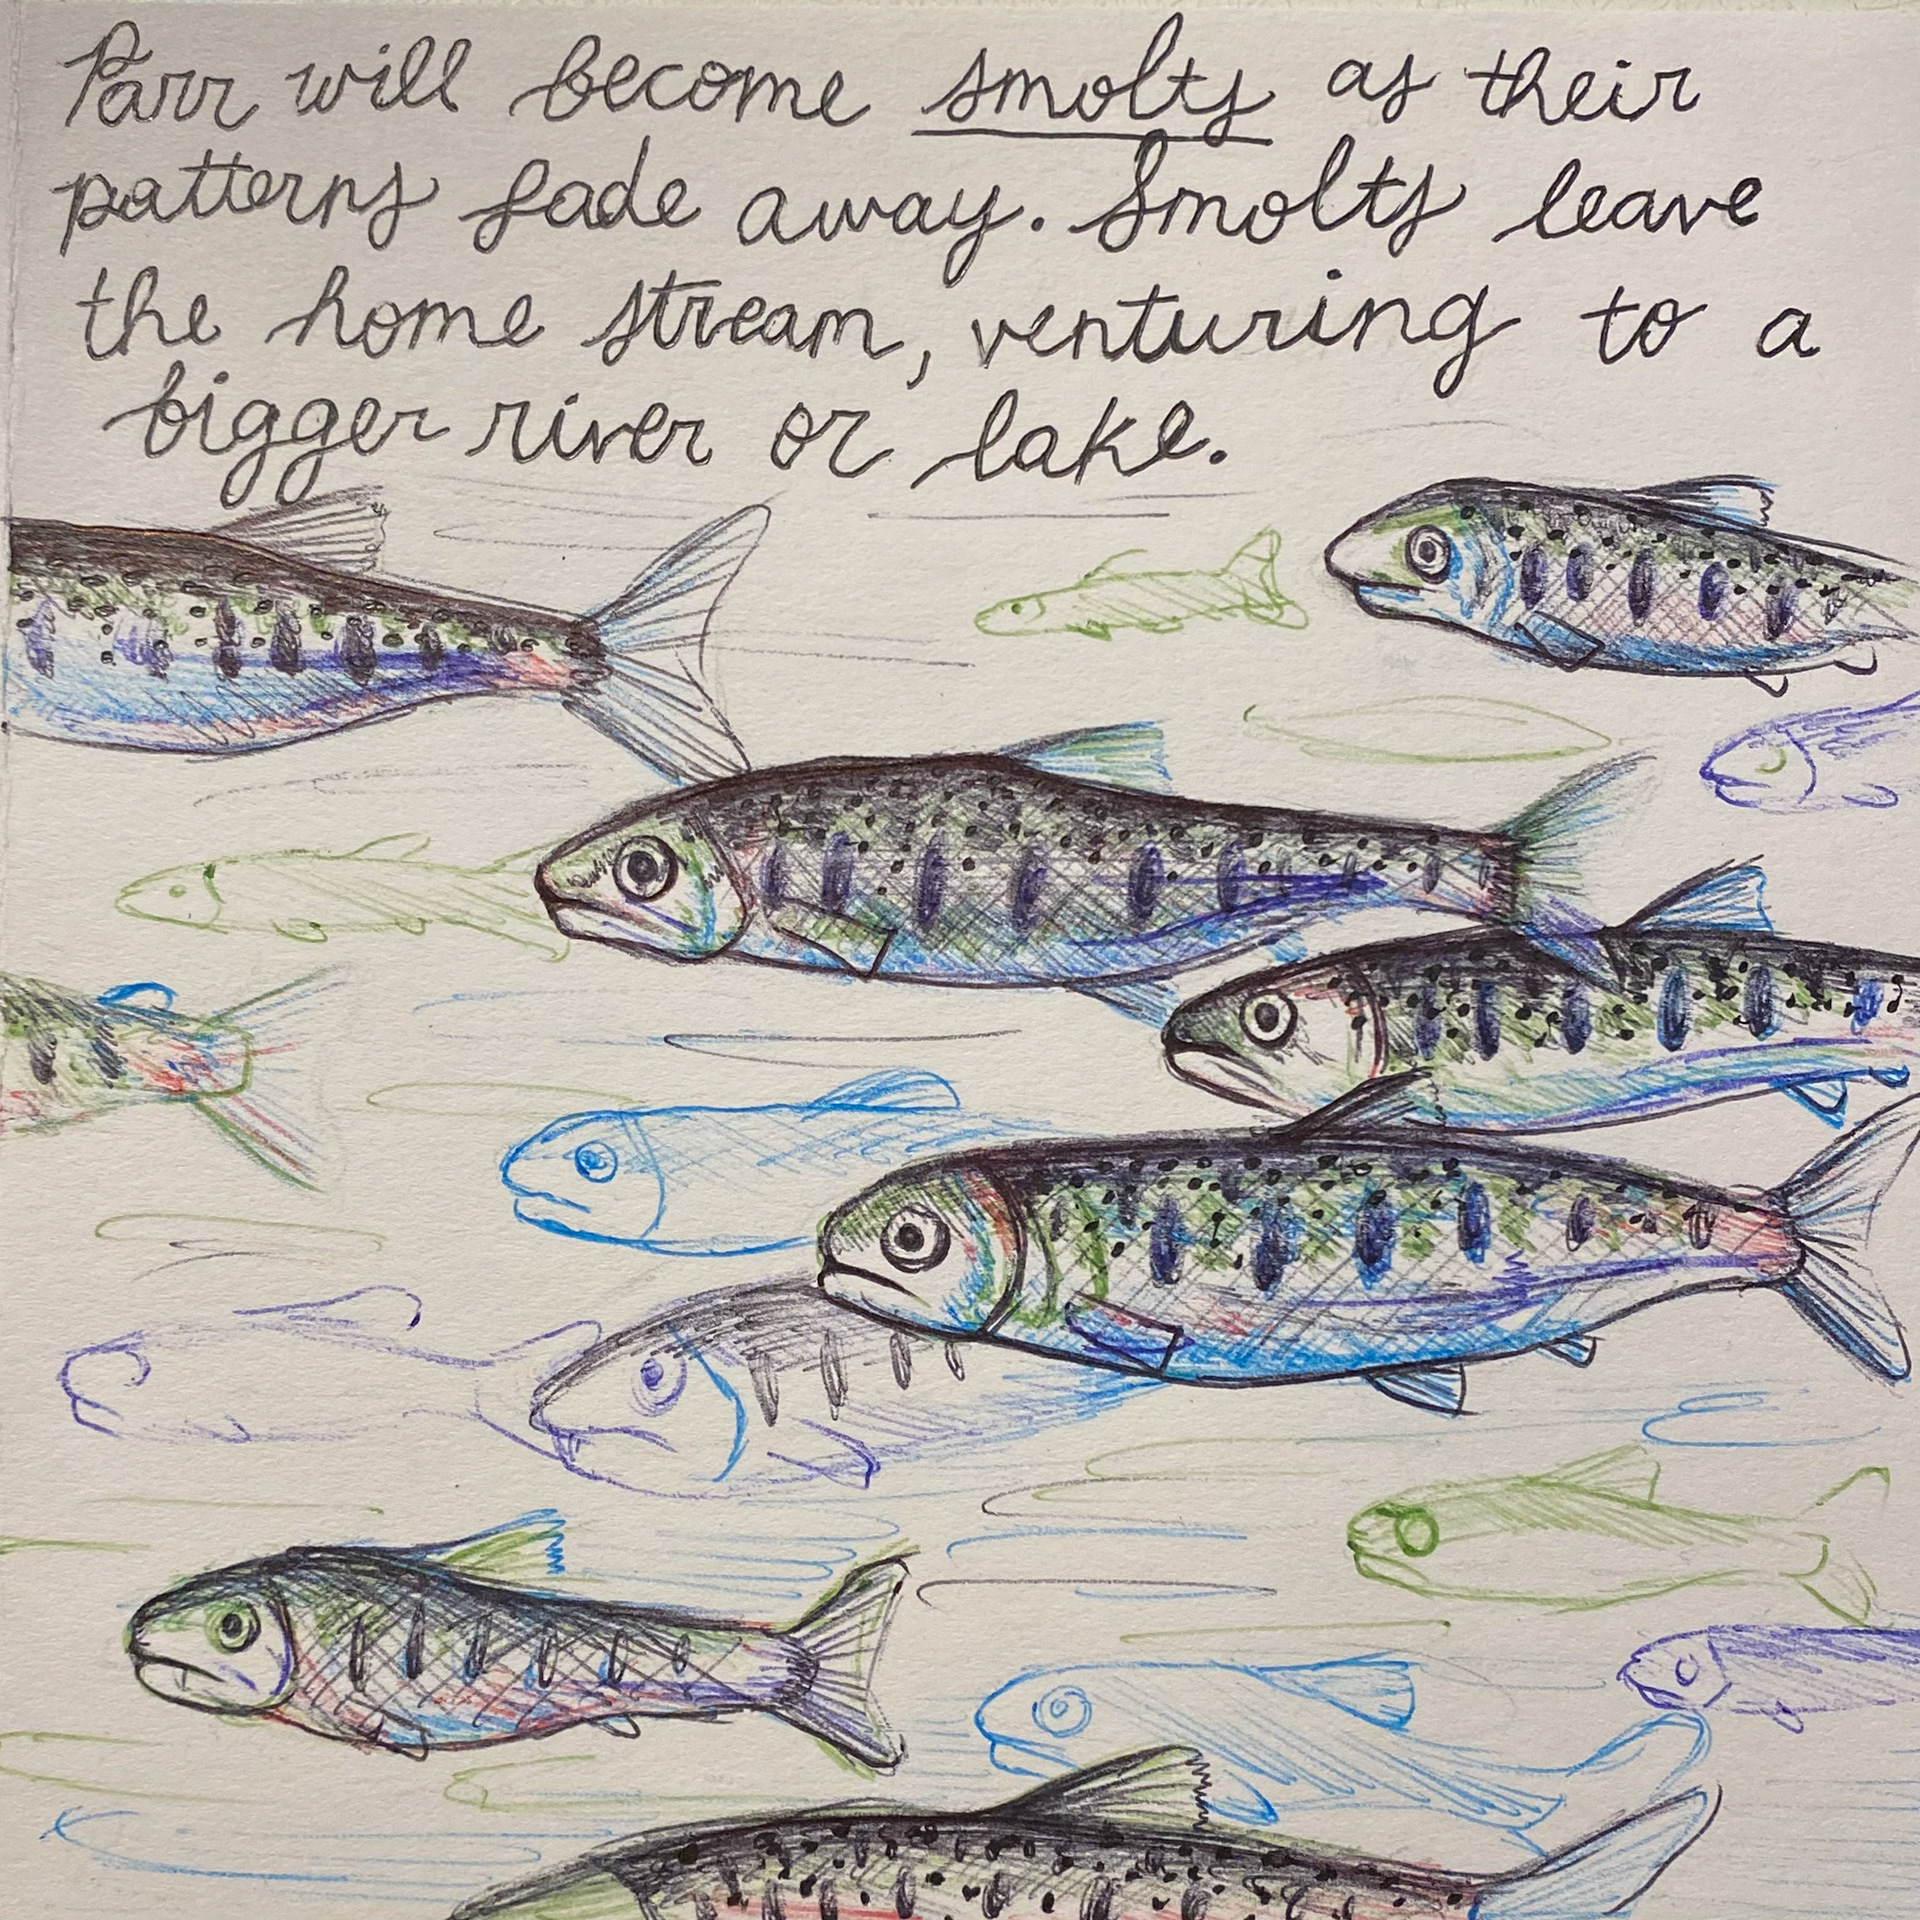 Parr will become smolts as their
patterns fade away. Smolts leave
the home stream, venturing to a
bigger river or lake.